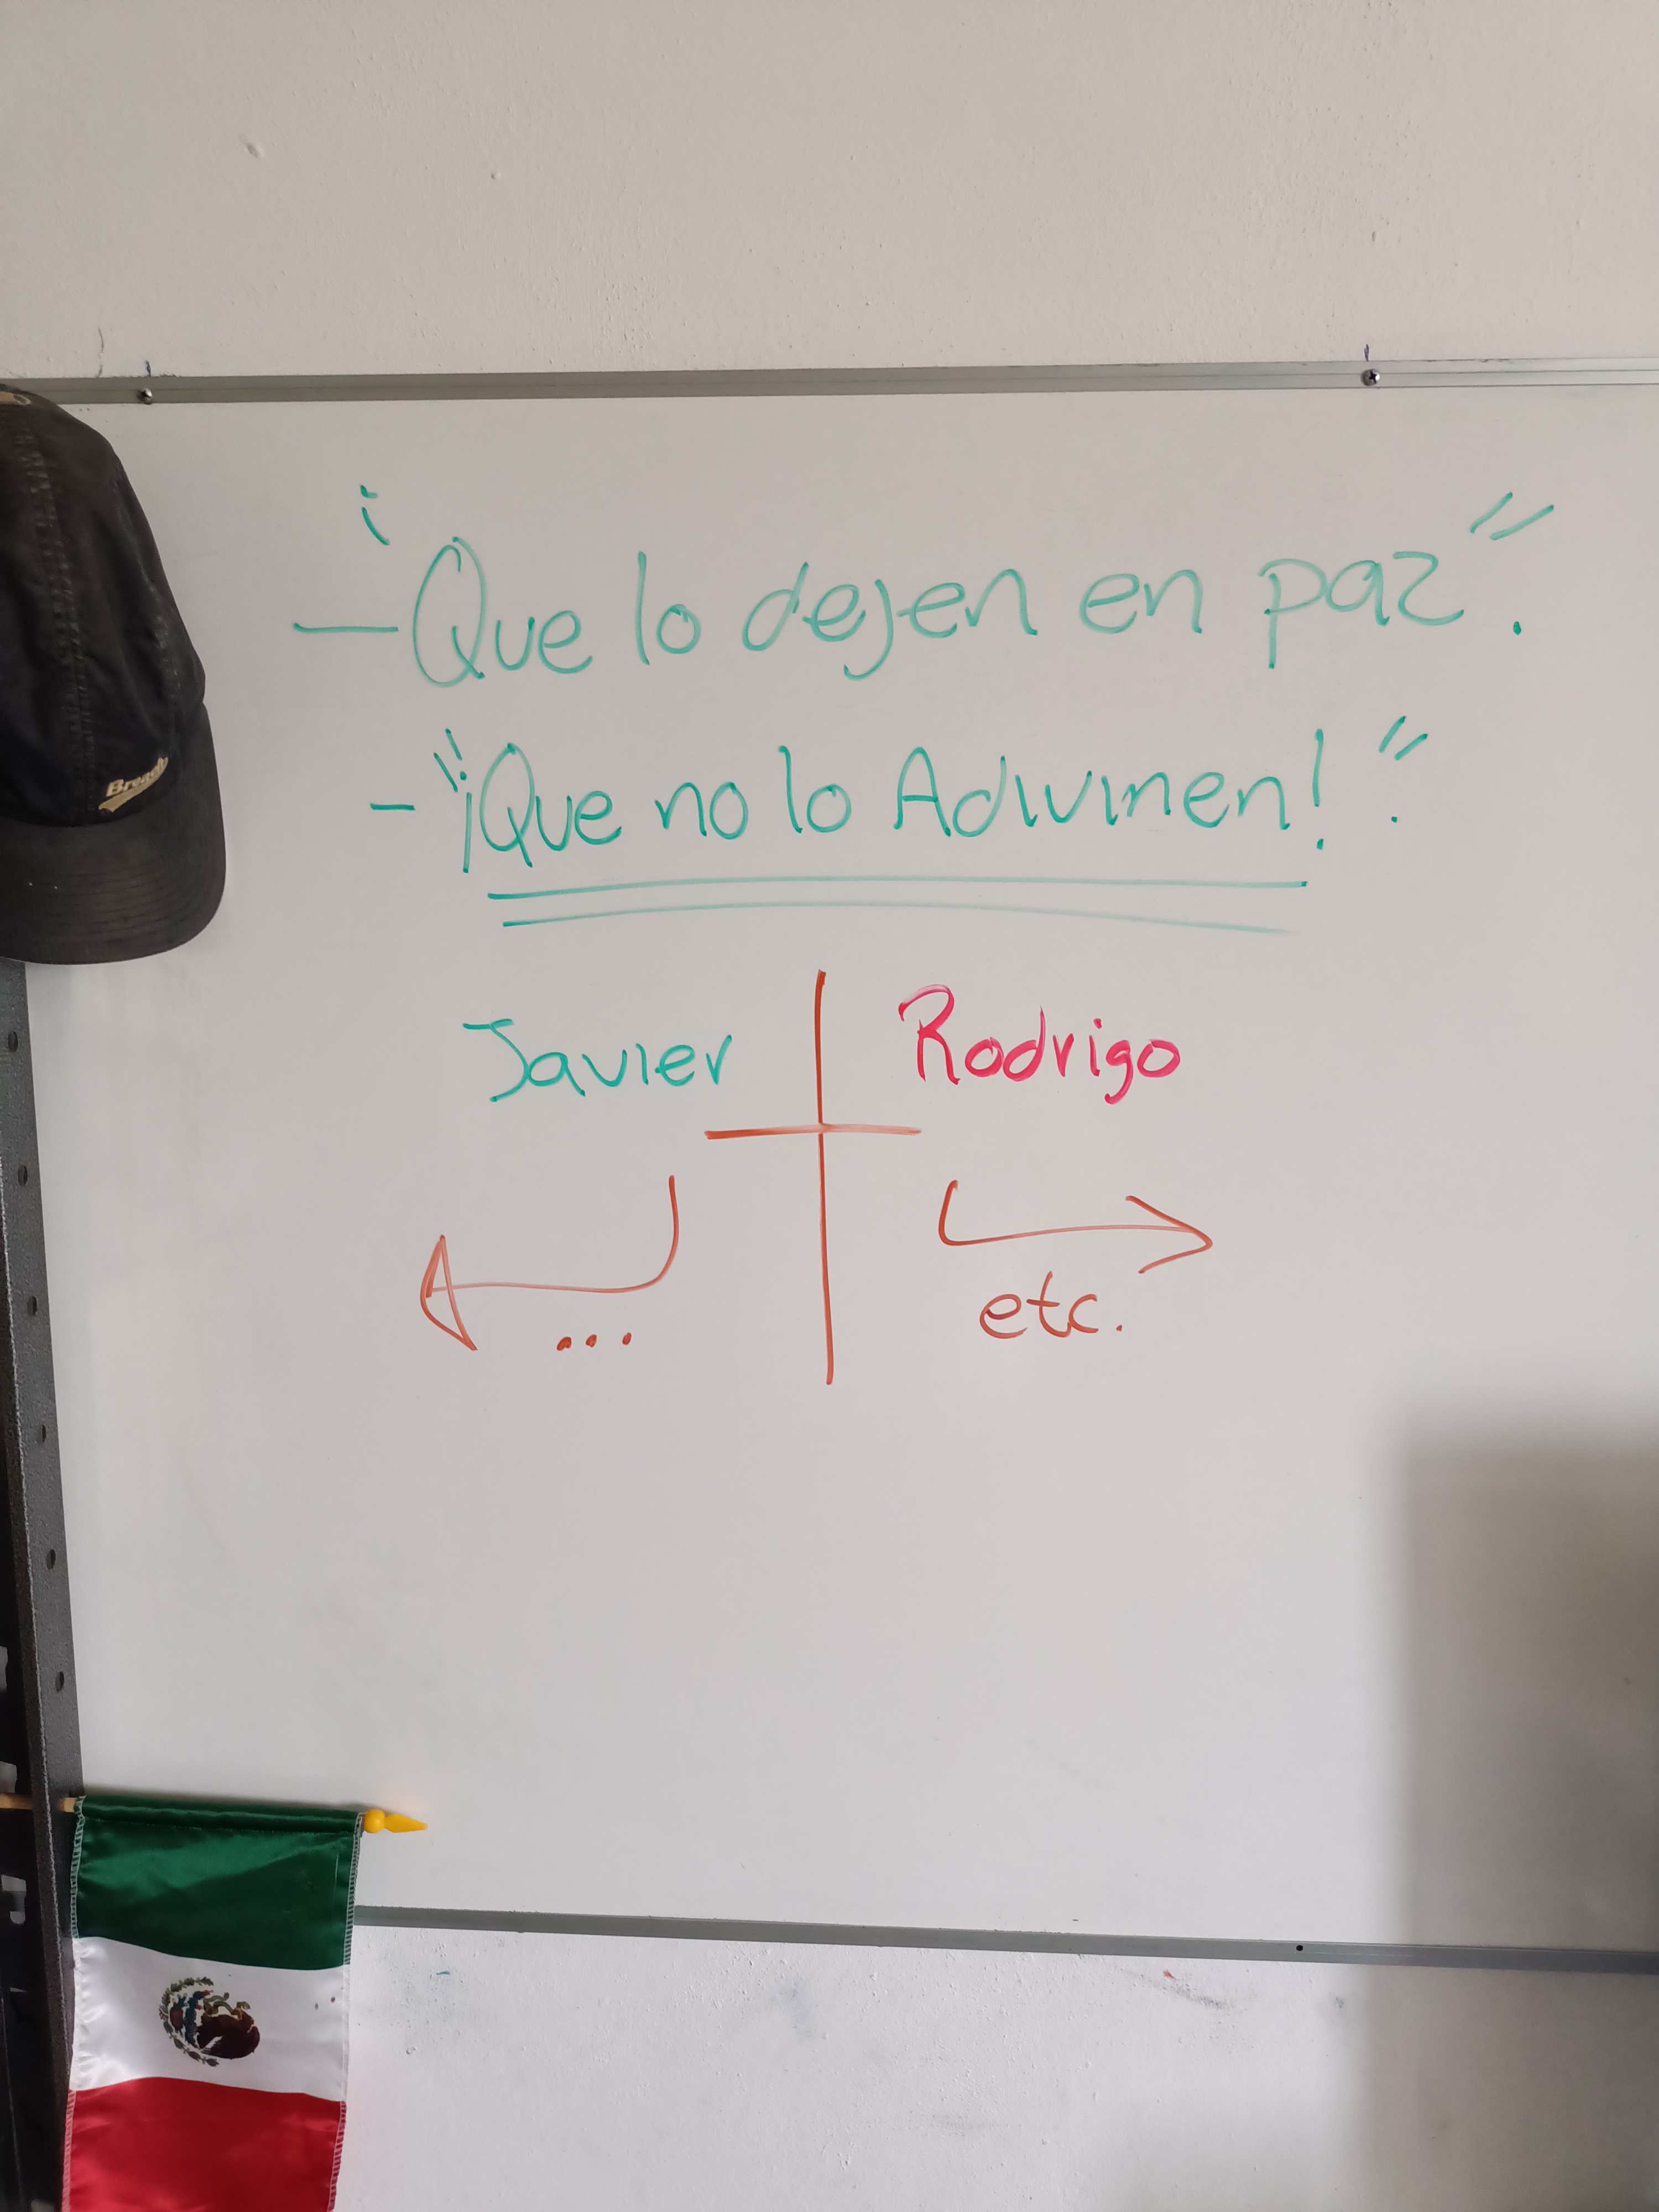 — ¡Que lo dejen en paz".
- "¡Que no lo Adivinen!".
Javier
Rodrigo
...
etc.
Breach